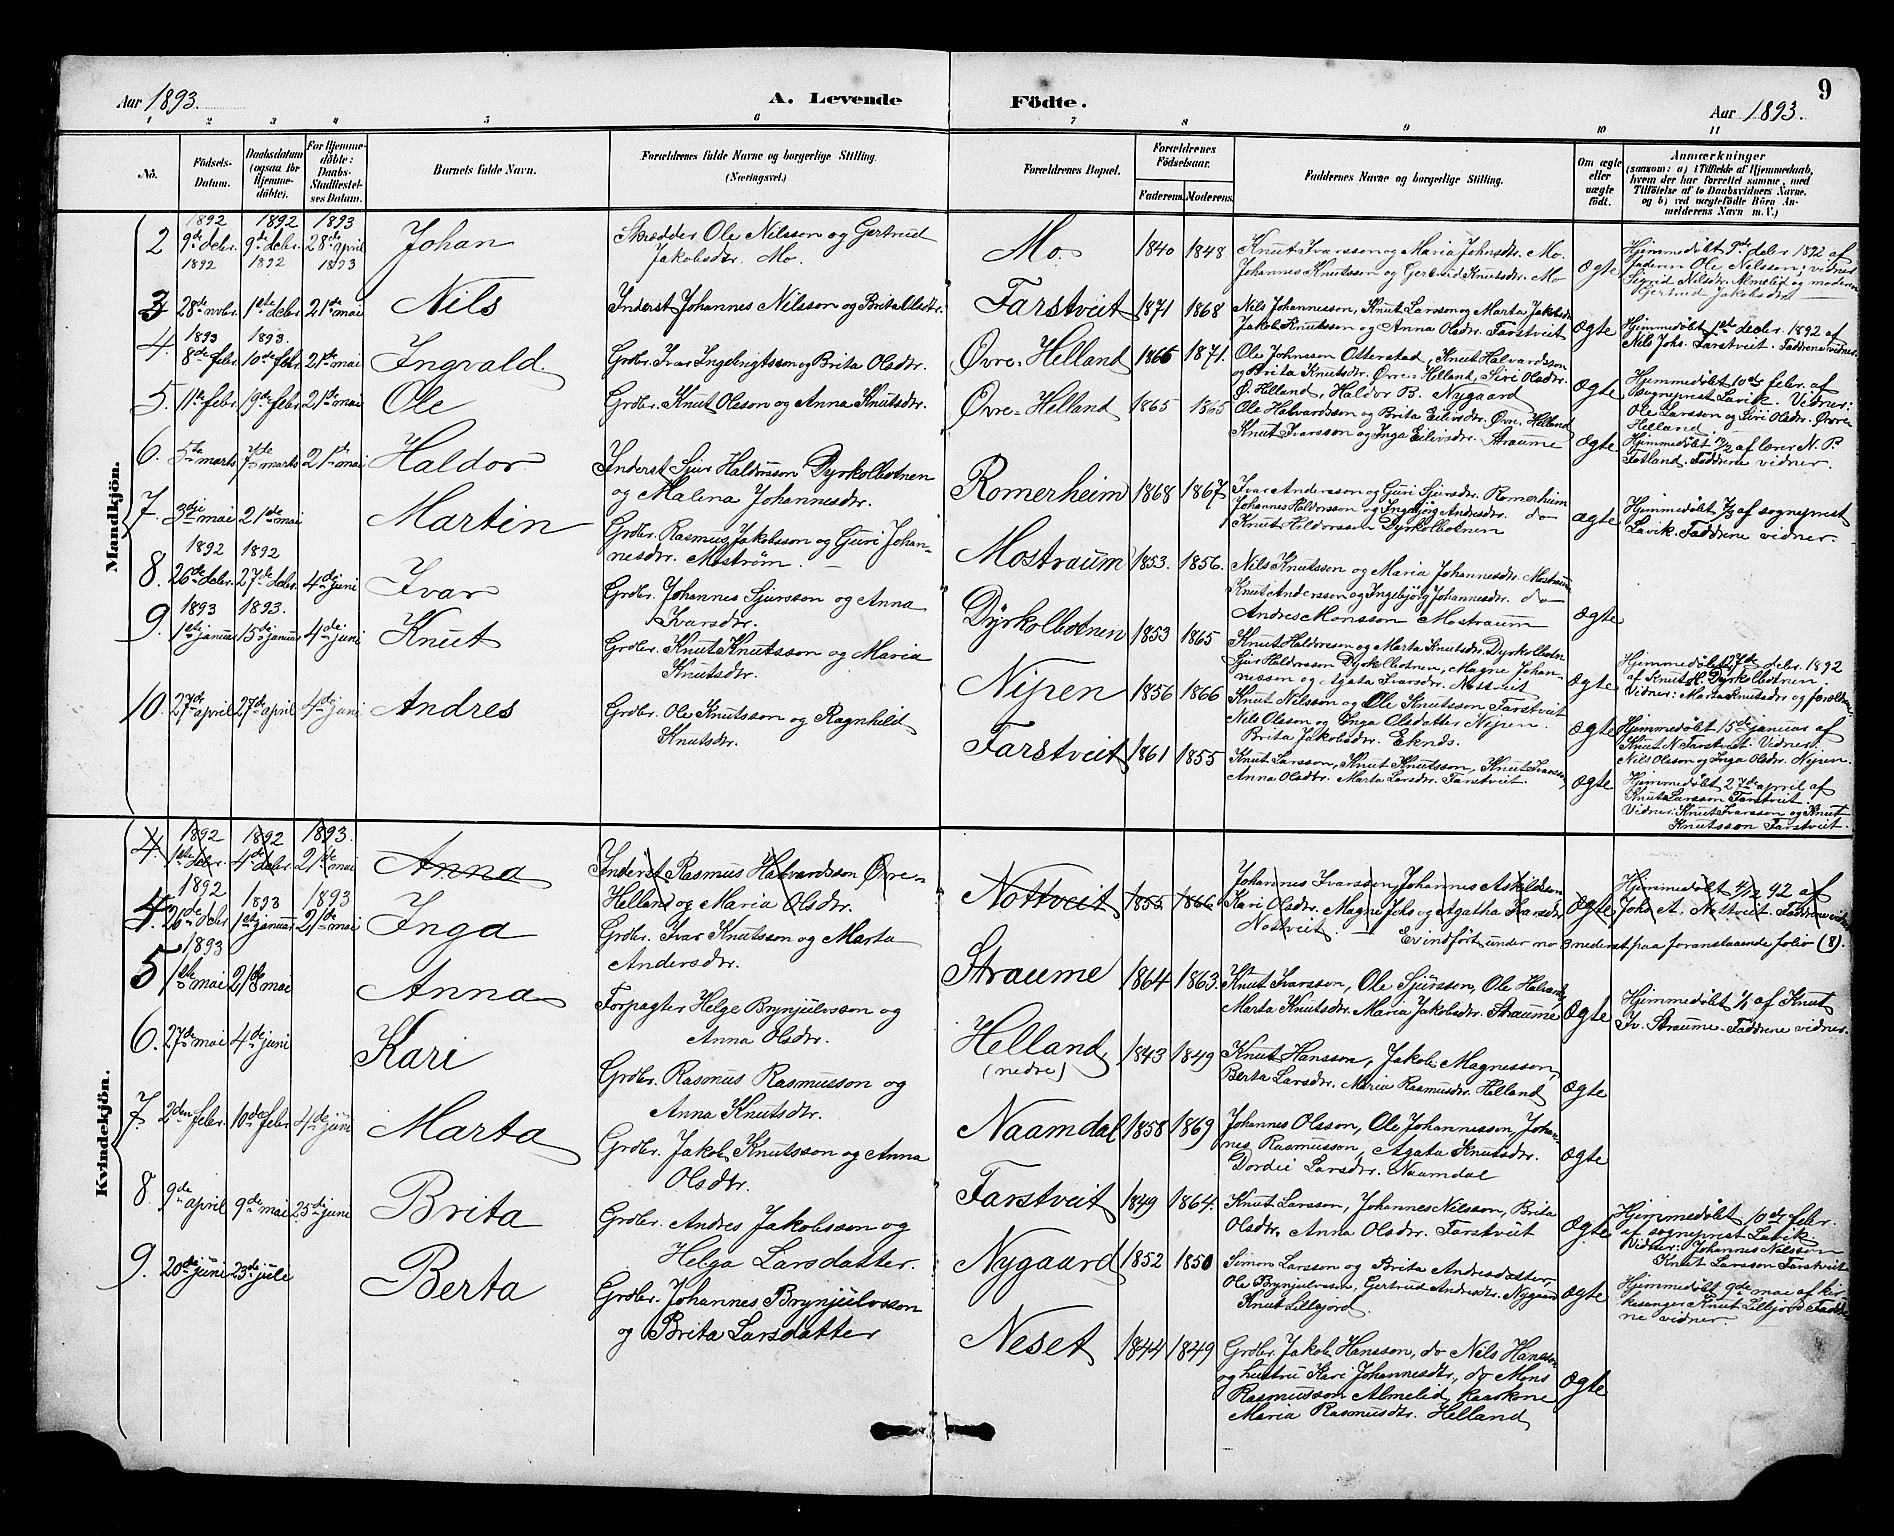 Aar 1893. A. Levende Födte. Aar 1893. 9
1 2 3 4 5 6 7 8 9 10 11
No. Födsels-Datum. Daabsdatum (ogsaa for Hjemmedöbte). For Hjemmedöbte: Daabs-Stadfæstelses Datum. Barnets fulde Navn. Forældrenes fulde Navne og borgerlige Stilling. (Næringsvei.) Forældrenes Bopæl. Forældrenes Födselsaar. Faderens. Moderens. Faddernes Navne og borgerlige Stilling. Om ægte eller uægte født. Anmærkninger (saasom: a) i Tilfælde af Hjemmedaab, hvem der har forrettet samme, med Tilföielse af to Daabsvidners Navne, og b) ved uægtefödte Börn Anmelderens Navn m. V.)
Mandkjön.
2 1892 9de decbr. 1892 9de decbr. 1893 28de april Johan Skrædder Ole Nilsson og Gertrud
Jakobsdtr. Mo. Mo. 1840 1848 Knut Ivarsson og Maria Johnsdtr. Mo.
Johannes Knutsson og Gertrud Knutsdtr. Mo ægte Hjemmedöbt 9de decbr 1892 af
faderen Ole Nilsson; vidner
Sigrid Nilsdtr. Almelid og moderen
Gertrud Jakobsdtr
3 1892 28de nvbr. 1892 1ste decbr 1893 21de mai Nils Inderst Johannes Nilsson og Brita Olsdtr. Farstveit 1871 1868 Nils Johannesson, Knut Larsson og Marta Jakobsdtr
Jakob Knutsson og Anna Olsdtr. Farstveit ægte Hjemmedöbt 1ste decbr. 1892 af
Nils Johs. Farstveit. Faddrene vidner.
4. 1893 8de febr. 1893. 10de febr. 21de mai Ingvald. Grdbr. Ivar Ingebrigtsson og Brita Olsdtr. Övre-Helland 1866 1871. Ole Johnsson Otterstad, Knut Halvardsson
og Brita Knutsdtr. Övre-Helland, Siri Olsdtr.
Ö. Helland, Haldor B. Nygaard ægte Hjemmedöbt 10de febr. af
Sogneprest Lavik. Vidner:
Ole Larsson og Siri Olsdtr. Övre
Helland.
5. 11te febr. 19de febr 21de mai Ole Grdbr. Knut Olsson og Anna Knutsdtr. Övre-Helland 1865 1865 Ole Halvardsson og Brita Eilivsdtr. Övre Helland
Knut Ivarsson og Inga Eilivsdtr. Straume ægte Hjemmedöbt 19/2 af lærer N. P.
Fotland. Faddrene vidner.
6. 5te marts 7de marts 21de mai Haldor Inderst Sjur Haldorsson Dyrkolbotnen
og Malena Johannesdtr. Romerheim 1868 1867 Ivar Andersson og Guri Sjursdtr. Romerheim
Johannes Haldorsson og Ingebjörg Andresdtr. do
Knut Haldorsson Dyrkolbotnen ægte Hjemmedöbt 7/3 af sogneprest
Lavik. Faddrene vidner.
7. 3die mai 21de mai Martin Grdbr. Rasmus Jakobsson og Guri Johan-
nesdr. Moström. Mostraum 1853. 1856. Nils Knutsson og Maria Johannesdtr. Mostraum
Knut Andersson og Ingebjörg Johannesdtr. do
Andres Monsson Mostraum ægte
8. 1892 26de decbr. 1892 27de decbr. 4de juni Ivar Grdbr. Johannes Sjursson og Anna
Ivarsdtr. Dyrkolbotnen 1853 1865 Knut Haldorsson og Marta Knutsdtr. Dyrkolbotn
Sjur Haldorsson Dyrkolbotnen, Magne Johan-
nesson og Agata Ivarsdtr. Nottveit ægte Hjemmedöbt 27de decbr. 1892
af Knut H. Dyrkolbotnen.
Vidner: Marta Knutsdtr og forældrene.
9. 1893 1ste januar 1893. 15de januar 4de juni Knut Grdbr. Knut Knutsson og Maria
Knutsdtr. Nipen 1856 1866 Knut Nilsson og Ole Knutsson Farstveit
Nils Olsson og Inga Olsdatter Nipen.
Brita Jakobsdtr. Eknes. ægte Hjemmedöbt 15de januar af
Knut N. Farstveit. Vidner:
Nils Olsson og Inga Olsdtr. Nipen.
10. 27de april 27de april 4de juni Andres Grdbr. Ole Knutsson og Ragnhild
Knutsdtr. Farstveit 1861 1855 Knut Larsson, Knut Knutsson, Knut Ivarsson,
Anna Olsdtr. Marta Larsdtr. Farstveit. ægte Hjemmedöbt 27de april af
Knut Larsson Farstveit.
Vidner: Knut Ivarsson og Knut
Knutsson Farstveit.
Kvindekjön.
4. 1892 1ste decbr. 1892 4de decbr. 1893. 21de mai Anna Inderst Rasmus Halvardsson Övre-
Helland og Maria Olsdtr. Nottveit 1855. 1866. Johannes Ivarsson, Johannes Askildsen
Kari Olsdtr. Magne Johs og Agatha Ivarsdtr
Nottveit. ægte Hjemmedöbt 4/12 92 af
Johs A. Nottveit. Faddrene vidner
Er indfört under no 3 nederst paa foranstaaende folio (8).
4. 1892 26de decbr 1893 1ste januar 1893 21de mai Inga Grdbr. Ivar Knutsson og Marta
Andersdtr. Straume 1864 1863. Knut Ivarsson, Ole Sjursson, Ole Halvardss
Marta Knutsdtr. Maria Jakobsdtr. Straume ægte Hjemmedöbt 1/1 af Knut
Iv. Straume. Faddrene vidner.
5 1893 1ste mai 21de mai Anna Forpagter Helge Brynjulvsson og
Anna Olsdtr. Helland (nedre) 1843 1849 Knut Hansson, Jakob Magnesson,
Berta Larsdtr. Maria Rasmusdtr. Helland ægte
6. 27de mai 4de juni Kari Grdbr. Rasmus Rasmusson og
Anna Knutsdtr. Naamdal 1858 1869 Johannes Olsson, Ole Johannesson, Johan-
nes Rasmusson, Agata Knutsdtr.
Dordei Larsdtr. Naamdal ægte
7. 2den febr. 10de febr 4de juni Marta Grdbr. Jakob Knutsson og Anna
Olsdtr. Farstveit 1849 1864. Knut Larsson, Johannes Nilsson, Brita
Olsdtr. Anna Olsdtr. Farstveit ægte Hjemmedöbt 10de febr.
af sogneprest Lavik.
Vidner: Johannes Nilsson
Knut Larsson Farstveit
8. 9de april 9de mai 25de juni Brita Grdbr. Andres Jakobsson og
Helga Larsdatter. Nygaard 1852 1850 Simon Larsson og Brita Andresdatter,
Ole Brynjulvson, Gertrud Andresdtr. Nygaard
Knut Lillejord. ægte Hjemmedöbt 9de mai af kir-
kesanger Knut Lillejord. Fadde-
ne vidner.
9. 20de juni 23de juli Berta Grdbr. Johannes Brynjulvsson
og Brita Larsdatter Neset 1844 1849 Grdbr. Jakob Hansson, do Nils Hansson
og hustru Kari Johannesdtr, do Mons
Rasmusson Almelid, kaarkone
Maria Rasmusdtr. Helland ægte